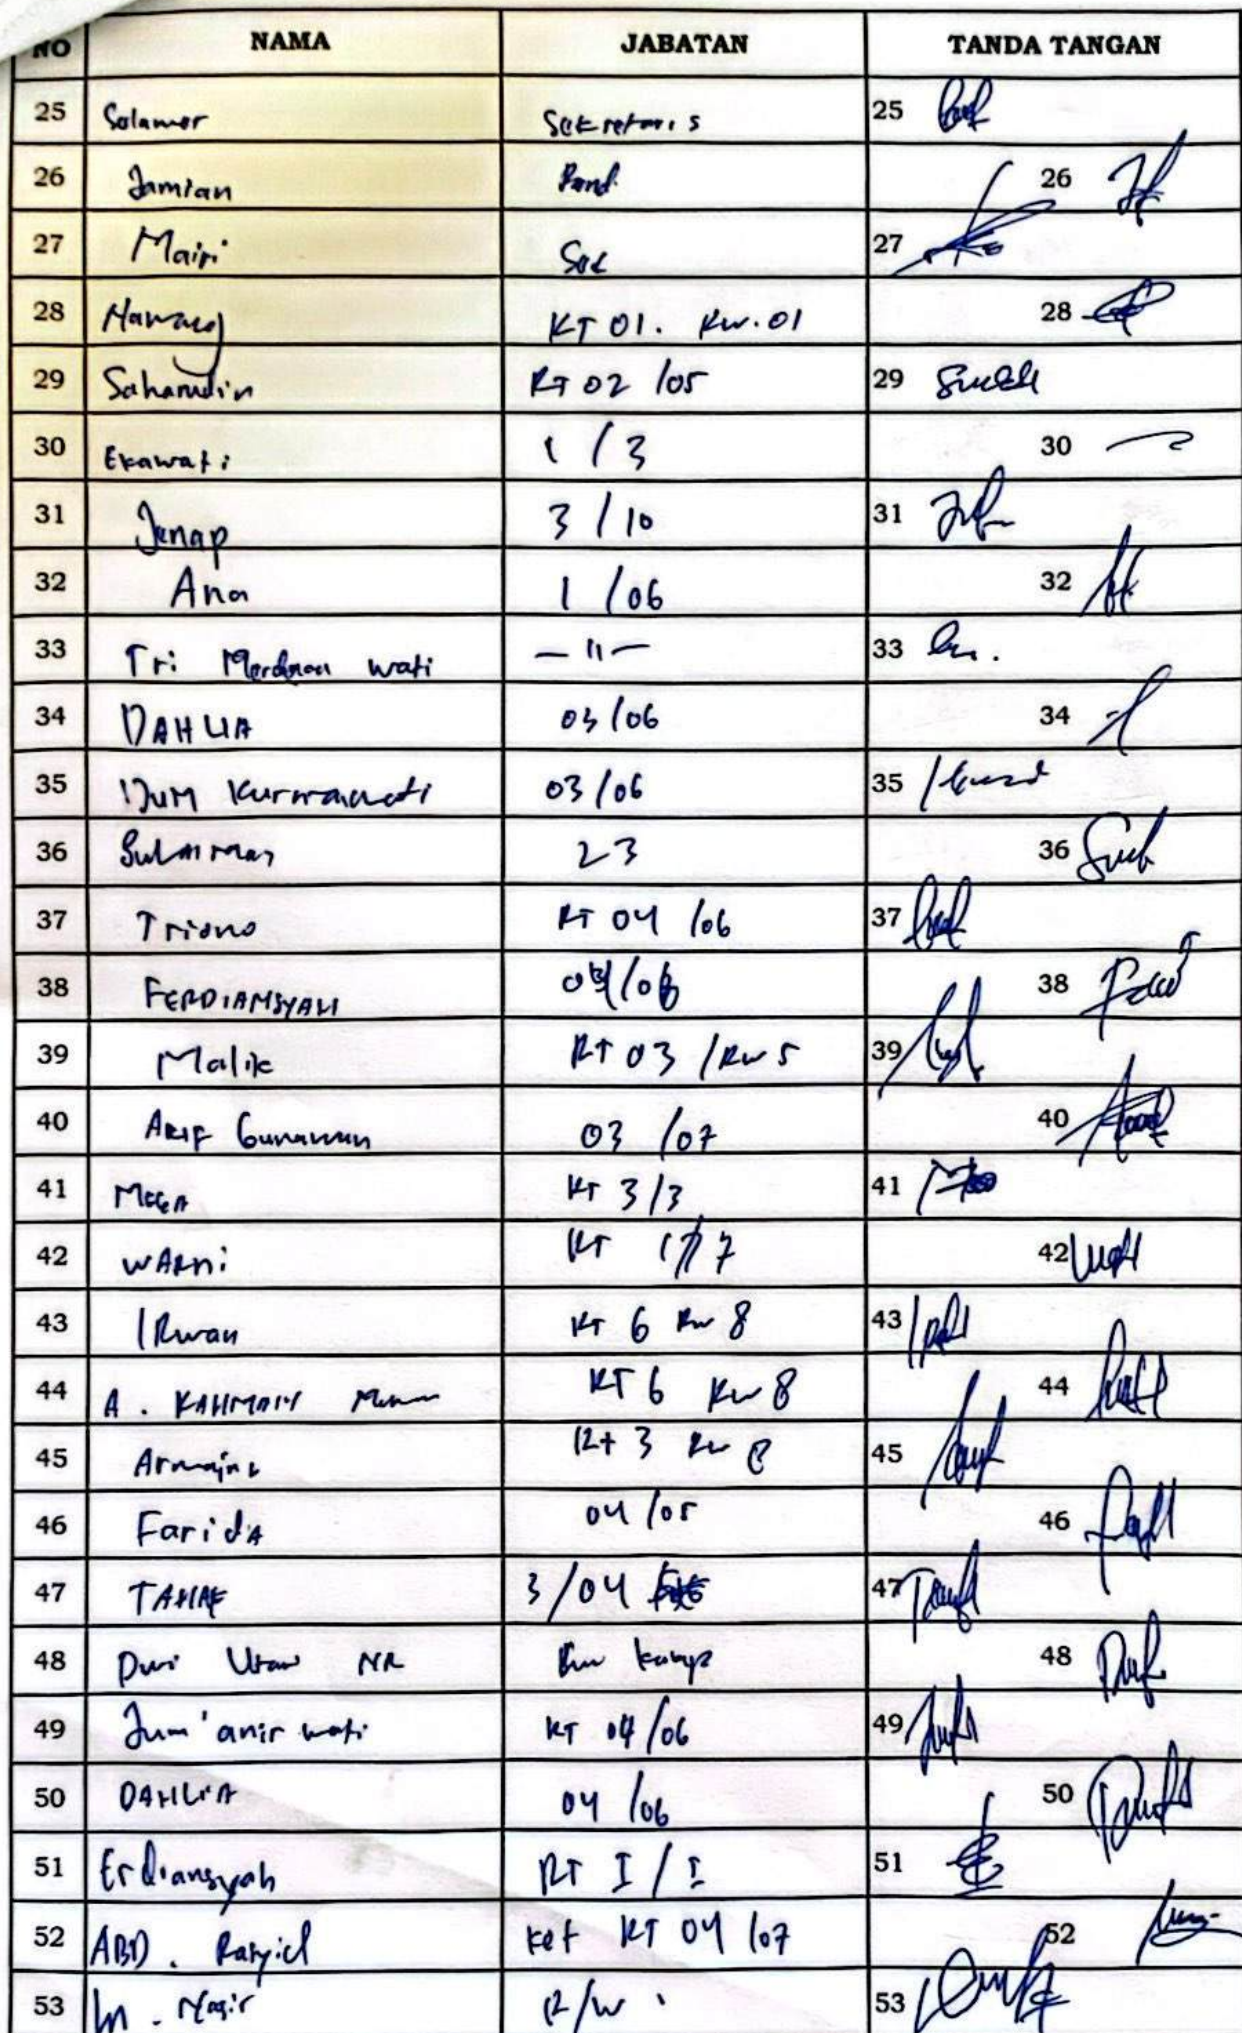 NO NAMA JABATAN TANDA TANGAN
25 Solamer Sekretaris 25
26 Jamian 26
27 Mairi Sek 27
28 RT 01. Rw. 01 28
29 Saharudin RT 02 /05 29
30 Ekawati 1 / 3 30
31 Janap 3 / 10 31
32 Ana 1 / 06 32
33 Tri wati — 11 — 33
34 DAHLIA 03/06 34
35 Kurmawati 03/06 35
36 23 36
37 Triono RT 04 /06 37
38 FERDIANSYAH /06 38
39 Malik RT 03 /RW 5 39
40 ARIF Gunawan 03 /07 40
41 MEGA RT 3/3 41
42 WARNi RT 1/7 42
43 IRwan RT 6 RW 8 43
44 A. RT 6 RW 8 44
45 Rt 3 RW 8 45
46 FaridA 04 /05 46
47 3/04 47
48 Dwi NR 48
49 Jum'anir wati RT 04/06 49
50 DAHLIA 04 /06 50
51 Erdiansyah RT I / I 51
52 ABD. Rasyid ket RT 04 /07 52
53 M. Nasir 53